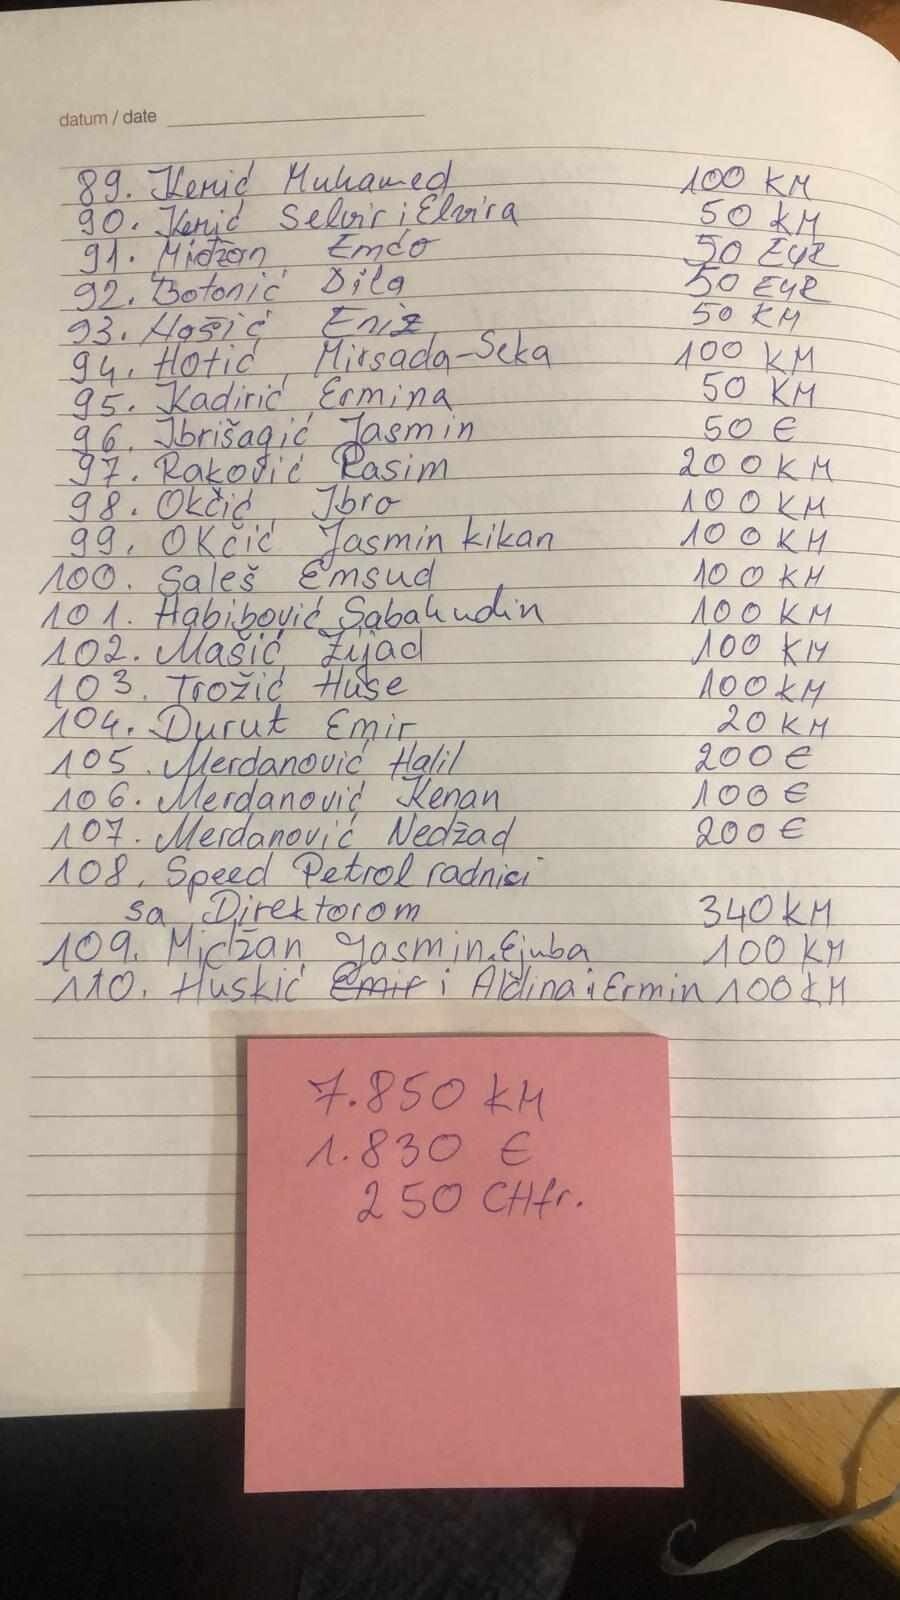 datum / date
89. Kemić Muhamed 100 KM
90. Kemić Selvir i Elvira 50 KM
91. Midžan Emćo 50 EUR
92. Botonić Dila 50 EUR
93. Hašić Eniz 50 KM
94. Hotić Mirsada-Seka 100 KM
95. Kadirić Ermina 50 KM
96. Ibrišagić Jasmin 50 €
97. Raković Rasim 200 KM
98. Okčić Ibro 100 KM
99. Okčić Jasmin kikan 100 KM
100. Saleš Emsud 100 KM
101. Habibović Sabahudin 100 KM
102. Mašić Zijad 100 KM
103. Trožić Huse 100 KM
104. Durut Emir 20 KM
105. Merdanović Halil 200 €
106. Merdanović Kenan 100 €
107. Merdanović Nedžad 200 €
108. Speed Petrol radnici
sa Direktorom 340 KM
109. Midžan Jasmin Ejuba 100 KM
110. Huskić Emir i Aldina i Ermin 100 KM
7.850 KM
1.830 €
250 CHfr.